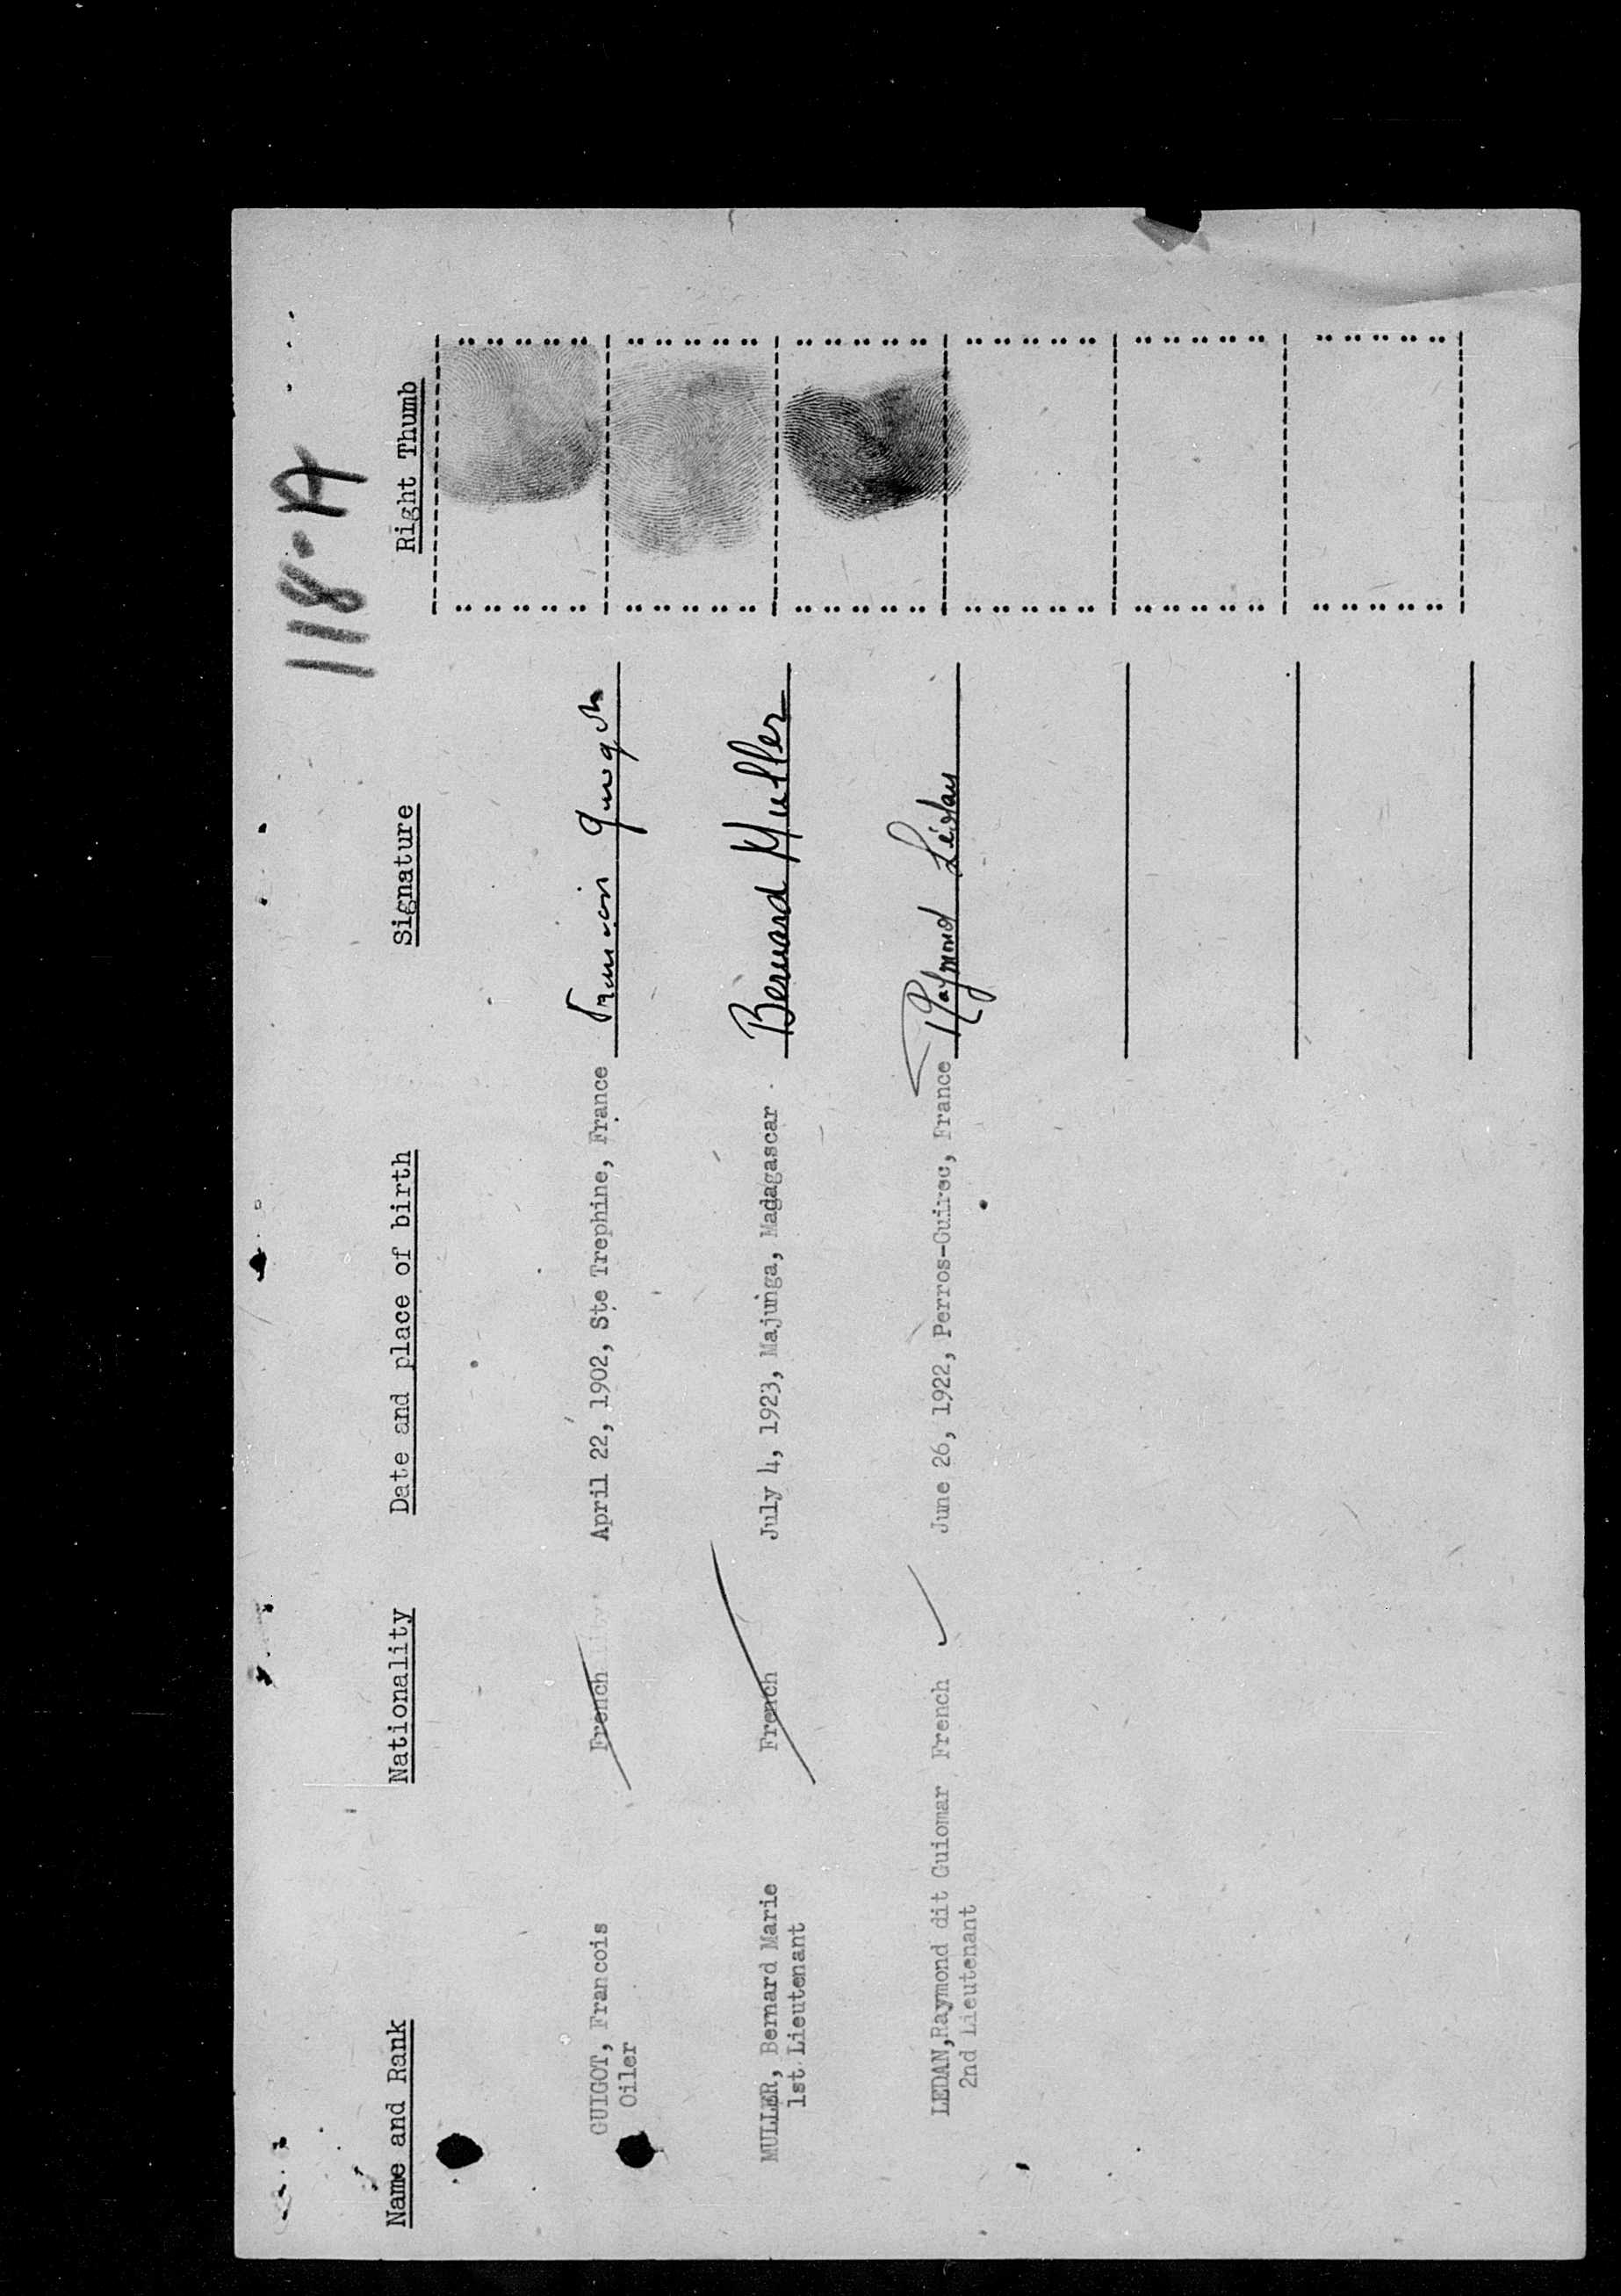 118-A
Name and Rank Nationality Date and place of birth Signature Right Thumb
GUIGOT, Francois French April 22, 1902, Ste Trephine, France
Oiler
MULLER, Bernard Marie French July 4, 1923, Majunga, Madagascar Bernard Muller
1st Lieutenant
LEDAN,Raymond dit Guiomar French June 26, 1922, Perros-Guirec, France Raymond Lédan
2nd Lieutenant